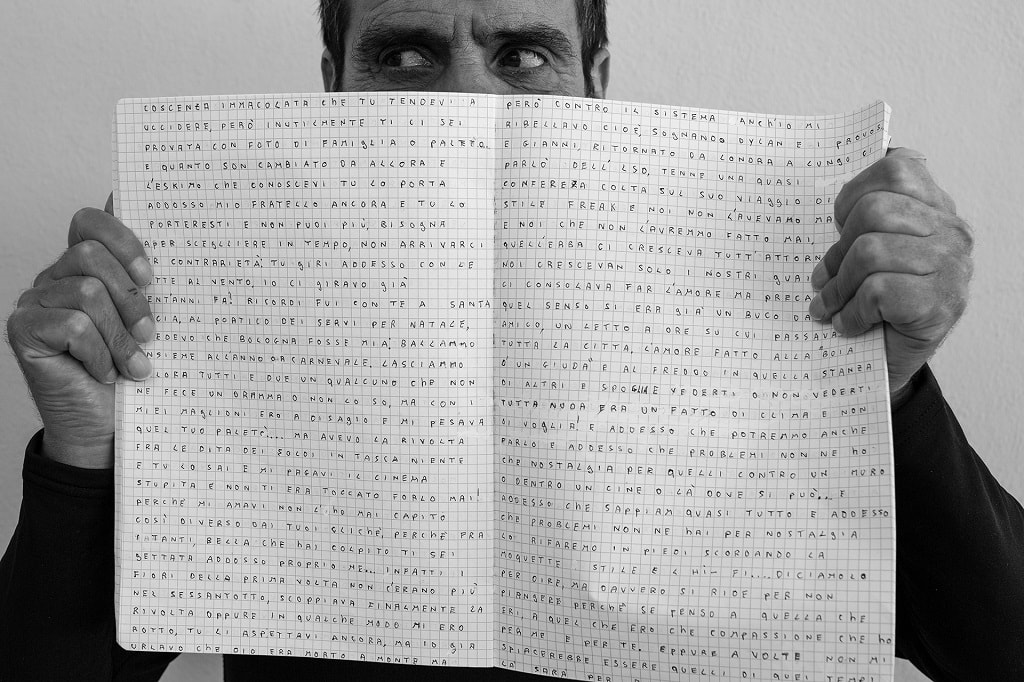 COSCENZA IMMACOLATA chE TU TENDEVI A
UCCIDERE, PERÒ INUTILMENTE TI CI SEI
PROVATA CON FOTO DI FAMIGLIA O PALETÒ...
E QUANTO SON CAMBIATO DA ALLORA E
L'ESKIMO CHE CONOSCEVI TU LO PORTA
ADDOSSO MIO FRATELLO ANCORA E TU LO
PORTERESTI E NON PUOI PIÙ, BISOGNA
APER SCEGLIERE IN TEMPO, NON ARRIVARCI
R CONTRARIETÀ. TU GIRI ADDESSO CON LE
TTE AL VENTO, IO CI GIRAVO GIÀ
ENT'ANNI FA! RICORDI FUI CON TE A SANTA
CIA, AL PORTICO DEI SERVI PER NATALE,
EDEVO CHE BOLOGNA FOSSE MIA: BALLAMMO
NSIEME ALL'ANNO O A CARNEVALE. LASCIAMMO
LORA TUTTI E DUE UN QUALCUNO ChE NON
NE FECE UN DRAMMA O NON LO SO, MA CON I
MIEI MAGLIONI ERO A DISAGIO E MI PESAVA
QUEL TUO PALETÒ.... MA AVEVO LA RIVOLTA
FRA LE DITA DEI SOLDI IN TASCA NIENTE
E TU LO SAI E MI PAGAVI IL CINEMA
STUPITA E NON TI ERA TOCCATO FARLO MAI!
PERCHÉ MI AMAVI NON L'HO MAI CAPITO
COSÌ DIVERSO DAI TUOI CLICHÉ, PERCHÉ FRA
I TANTI, BELLA ChE HAI COLPITO TI SEI
GETTATA ADDOSSO PROPRIO ME... INFATTI I
FIORI DELLA PRIMA VOLTA NON C'ERANO PIÙ
NEL SESSANTOTTO, SCOPPIAVA FINALMENTE LA
RIVOLTA OPPURE IN QUALCHE MODO MI ERO
ROTTO, TU LI ASPETTAVI ANCORA, MA IO GIÀ
URLAVO CHE DIO ERA MORTO A MONTE MA
PERÒ CONTRO IL SISTEMA ANCh'IO MI
RIBELLAVO CIOÈ, SOGNANDO DYLAN E I PROVOS
E GIANNI, RITORNATO DA LONDRA A LUNGO CI
PARLÒ DELL'LSD, TENNE UNA QUASI
CONFEREZA COLTA SUL SUO VIAGGIO DI
STILE FREAK E NOI NON L'AVEVAMO MA
E NOI CHE NON L'AVREMMO FATTO MAI,
QUELL'EABA CI CRESCEVA TUTT'ATTORN
NOI CRESCEVAN SOLO I NOSTRI GUAI
CI CONSOLAVA FAR L'AMORE MA PRECA
QUEL SENSO SI ERA GIÀ UN BUCO DA
AMICO, UN LETTO A ORE SU CUI PASSAVA
TUTTA LA CITTÀ. L'AMORE FATTO ALLA "BOIA
D'UN GIUDA" E AL FREDDO IN QUELLA STANZA
DI ALTRI E SPOGLIAE VEDERTI O NON VEDERTI
TUTTA NUDA ERA UN FATTO DI CLIMA E NON
DI VOGLIA! E ADDESSO ChE POTREMMO ANCHE
PARLO E ADDESSO ChE PROBLEMI NON NE hO
ChE NOSTALGIA PER QUELLI CONTRO UN MURO
O DENTRO UN CINE O LÀ DOVE SI PUÒ... E
ADDESSO ChE SAPPIAM QUASI TUTTO E ADDESSO
ChE PROBLEMI NON NE HAI PER NOSTALGIA
LO RIFAREMO IN PIEDI SCORDANDO LA
MOQUETTE STILE E L'HI-FI....DICIAMOLO
PER DIRE, MA DAVVERO SI RIDE PER NON
PIANGERE PERCHÉ SE PENSO A QUELLA ChE
ERI, A QUEL ChE ERO ChE COMPASSIONE ChE hO
PER ME E PER TE. EPPURE A VOLTE NON MI
SPIACEREBBE ESSERE QUELLI DI QUEI TEMPI
LÀ SARÀ PER